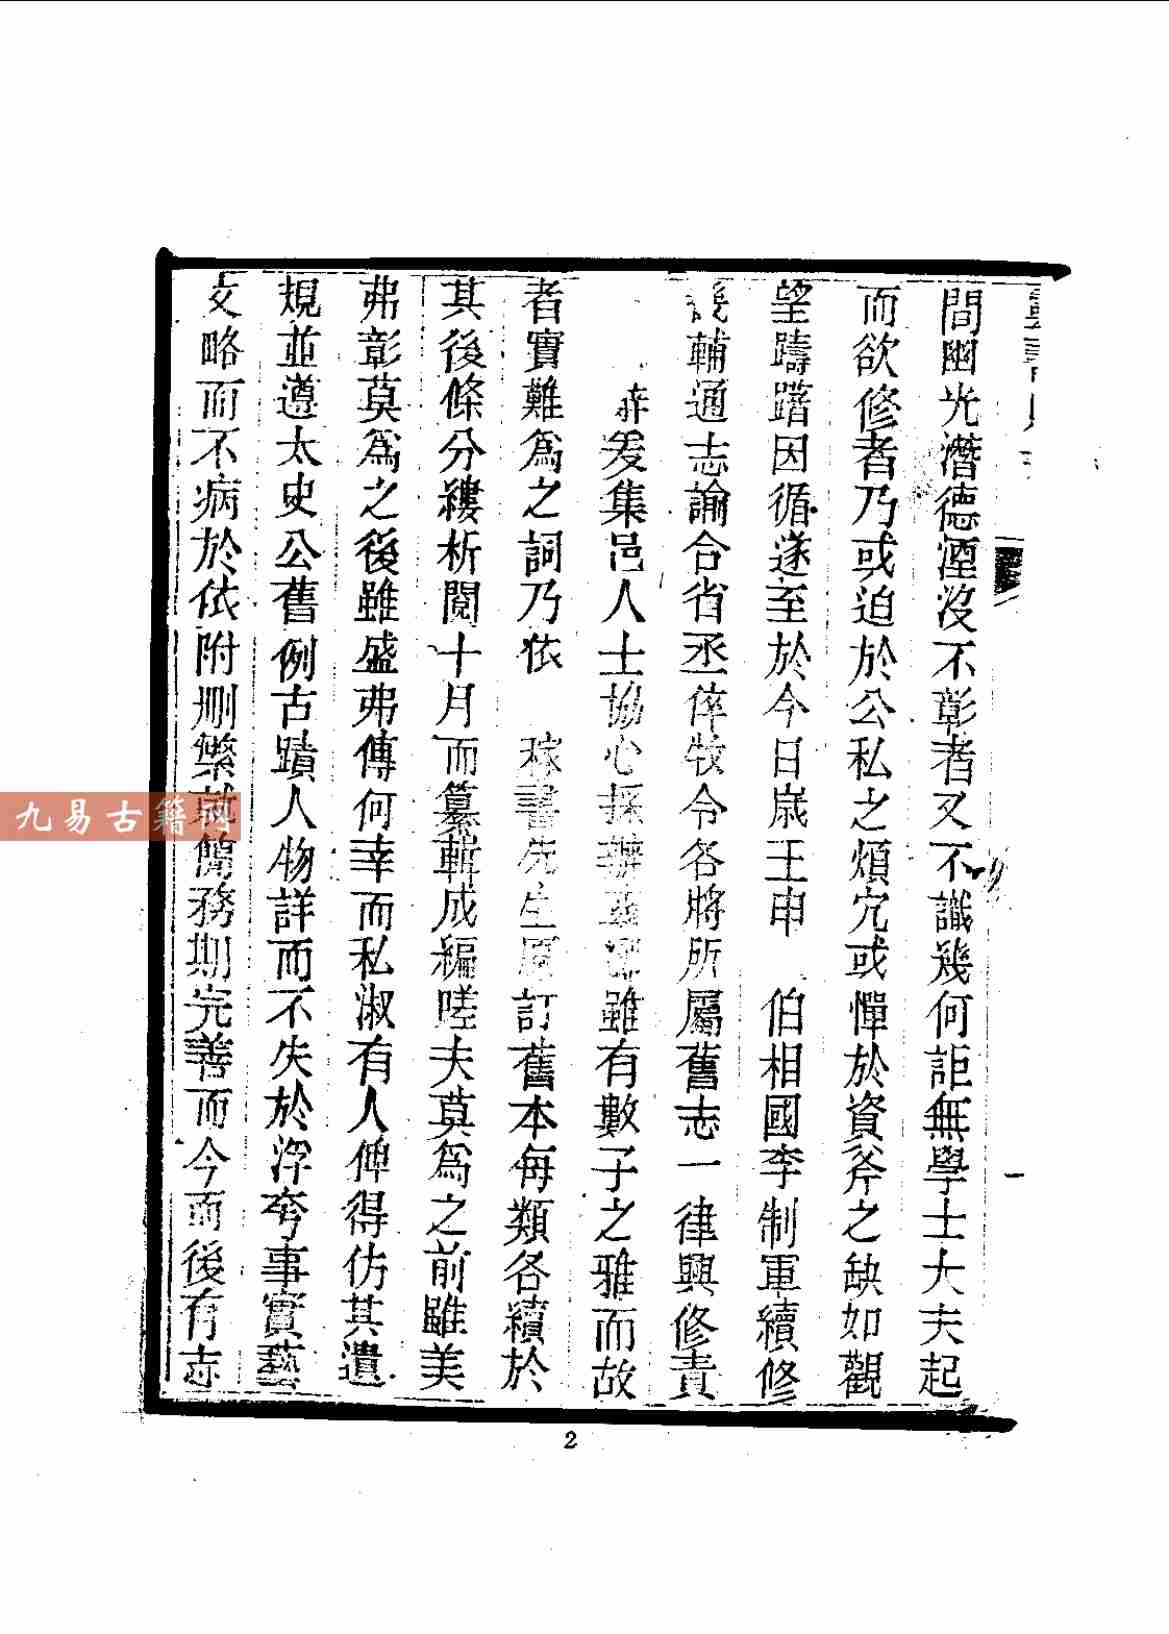 間幽光潛德湮沒不彰者又不識幾何詎無學士大夫起
而欲修者乃或迫於公私之煩冗或憚於資斧之缺如觀
望躊躇因循遂至於今日歲壬申 伯相國李制軍續修
畿輔通志諭合省丞倅牧令各將所屬舊志一律興修責
爰集邑人士協心採辦 雖有數子之雅而故
者實難為之詞乃依 稼書先生原訂舊本每類各續於
其後條分縷析閱十月而纂輯成編嗟夫莫為之前雖美
弗彰莫為之後雖盛弗傳何幸而私淑有人俾得仿其遺
規並遵太史公舊例古蹟人物詳而不失於浮夸事實藝
文略而不病於依附刪繁就簡務期完善而今而後有志
一
2
九易古籍网